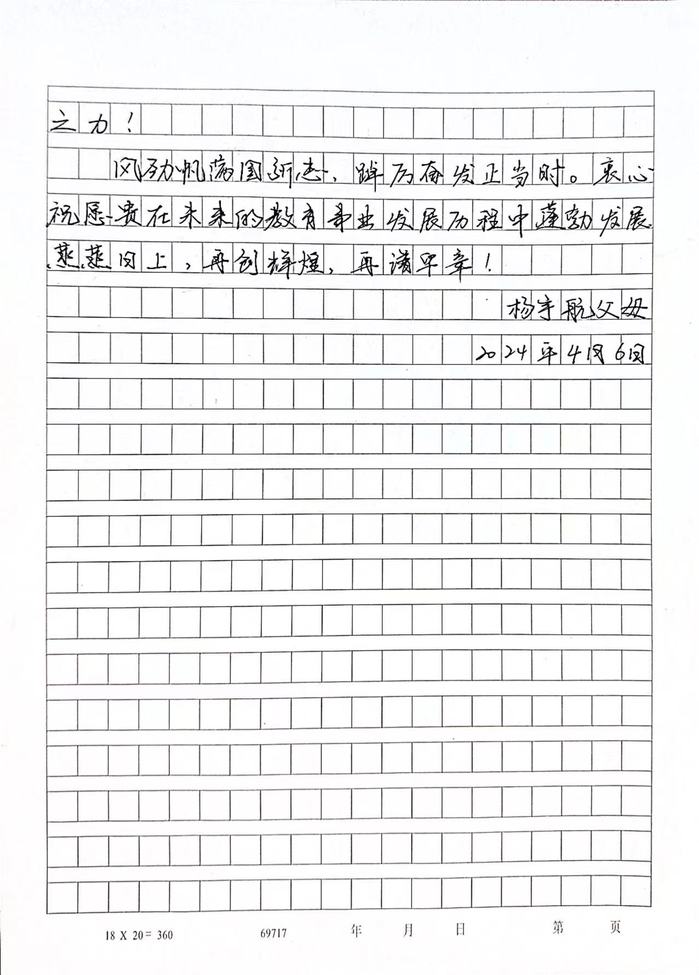 之力！
风劲帆满图新志，踔厉奋发正当时。衷心
祝愿贵在未来的教育事业发展历程中蓬勃发展
蒸蒸日上，再创辉煌，再谱华章！
杨宇航父母
2024年4月6日
18 X 20= 360 69717 年 月 日 第 页